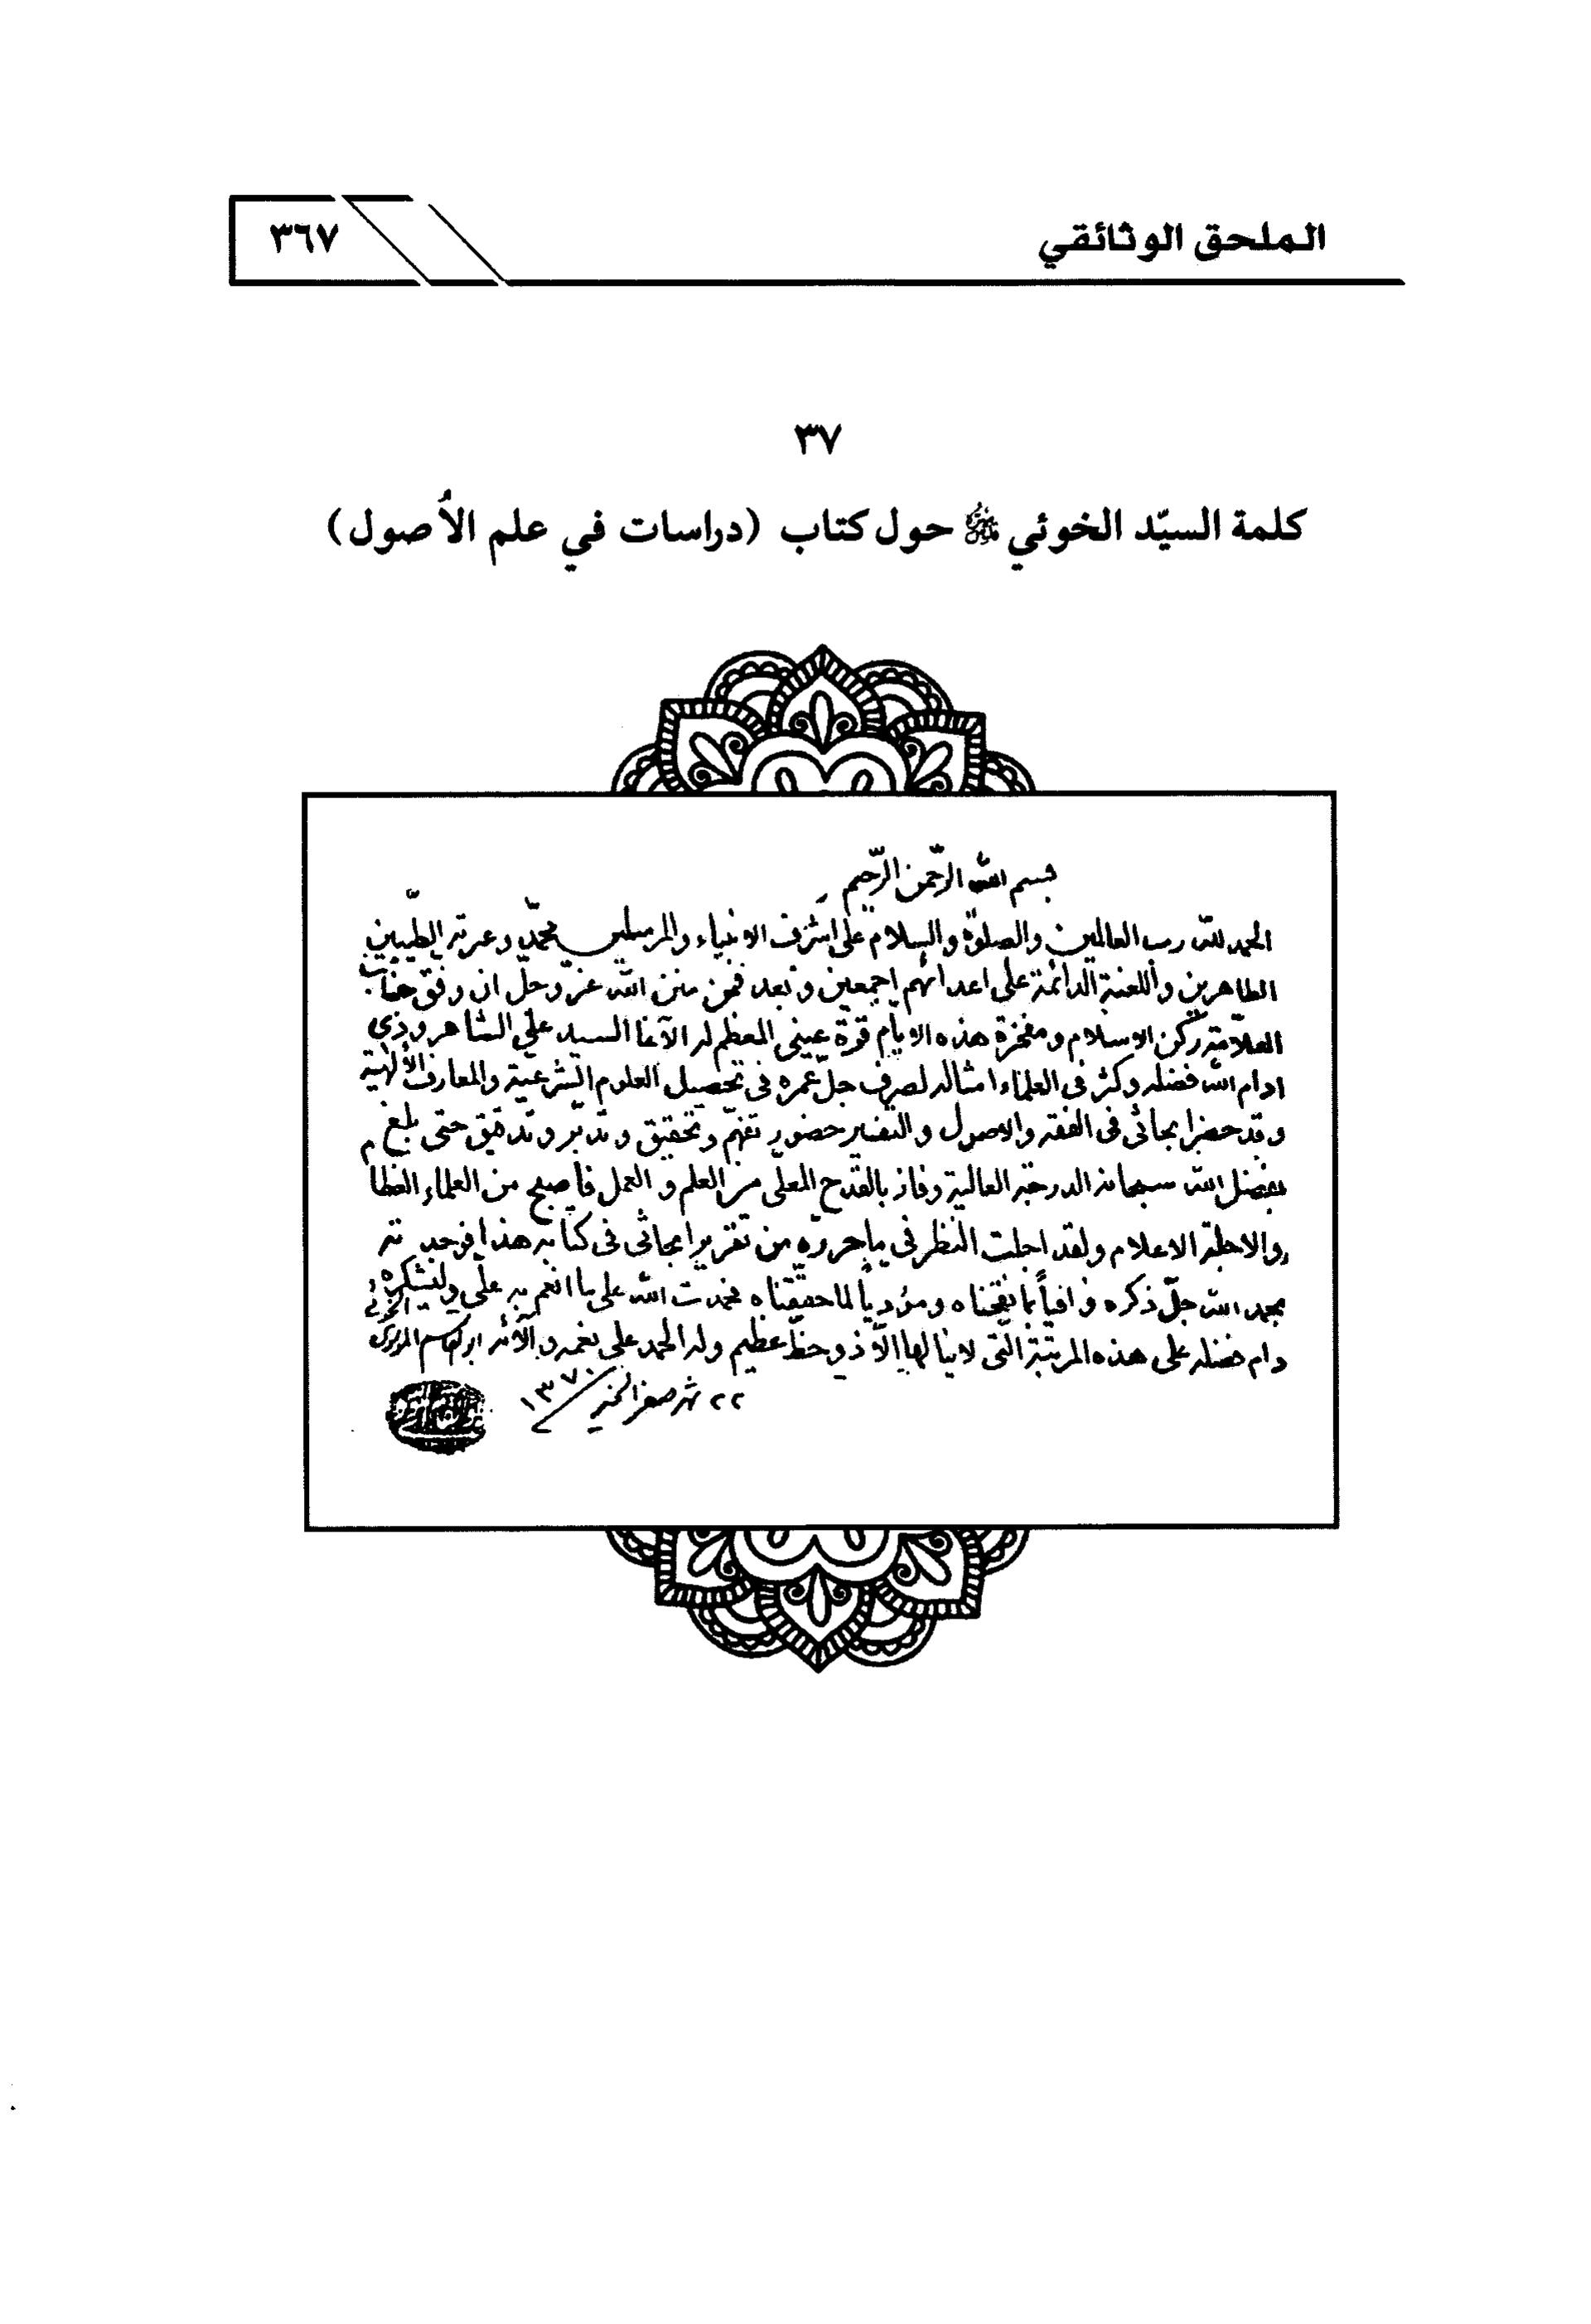 الملحق الوثائقي
٣٦٧
٣٧
كلمة السيّد الخوئي حول كتاب (دراسات في علم الأصول)
بسم الله الرّحمن الرّحيم
الحمد لله رب العالمين والصلوة والسلام على اشرف الانبياء والمرسلين محمّد وعترته الطيّبين
الطاهرين واللعنة الدائمة على اعدائهم اجمعين وبعد فمن منن الله عزّ وجلّ ان وفق جناب
العلّامة ركن الاسلام ومفخرة هذه الايام قرّة عيني المعظم له الآغا السيد علي الشاهرودى
ادام الله فضله وكثر فى العلماء امثاله لصرف جلّ عمره فى تحصيل العلوم الشرعية والمعارف الألهية
وقد حضر ابحاثى فى الفقه والاصول والتفسير حضور تفهّم وتحقيق وتدبّر وتدقيق حتى بلغ
بفضل الله سبحانه الدرجة العالية وفاز بالقدح المعلّى من العلم و العمل فاصبح من العلماء العظام
والاجلة الاعلام ولقد اجلت النظر فى ما حرّره من تقرير ابحاثى فى كتابه هذا فوجدته
بحمد الله جلّ ذكره وافياً بما نقحناه ومؤدياً لما حققناه فحمدت الله على ما انعم به علىّ وليشكره
دام فضله على هذه المرتبة التى لا ينالها الّا ذو حظّ عظيم وله الحمد على نعمه وآلائه ابوالقاسم الموسوى الخوئى
٢٢ شهر صفر الخير ١٣٧٠